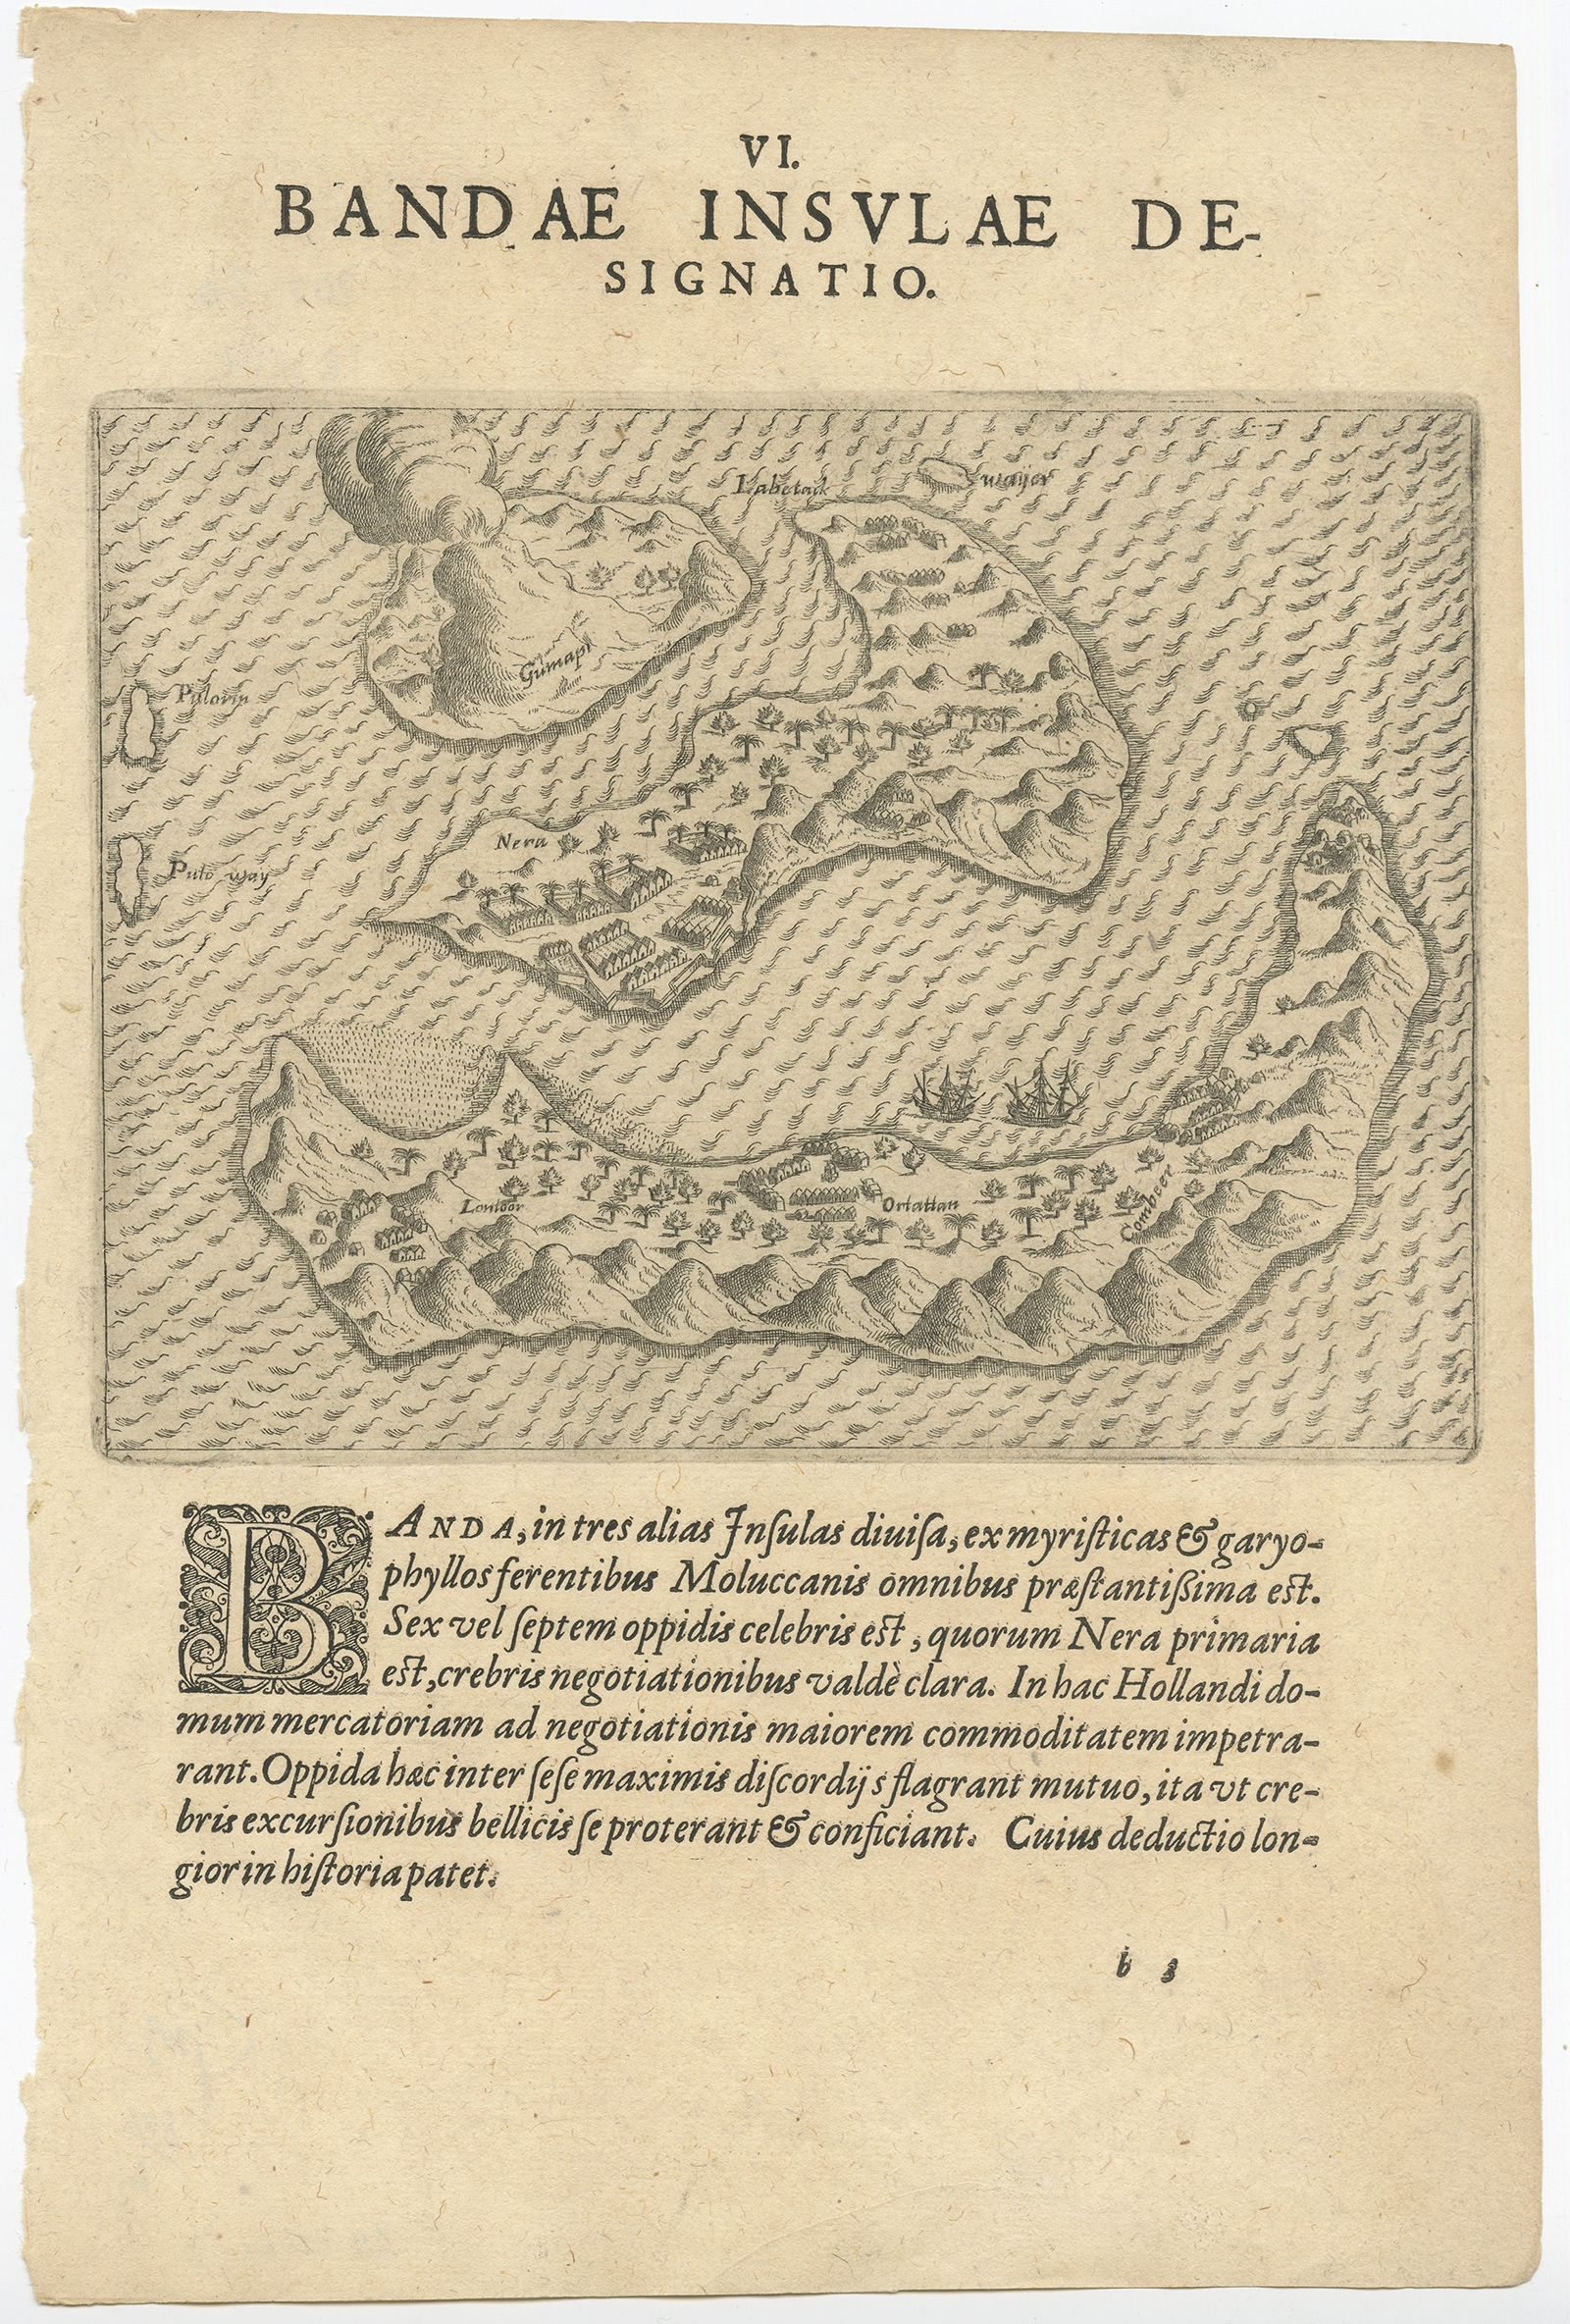 VI.
BANDAE INSVLAE DE-
SIGNATIO.
Labetack
waijer
Gumapi
Pulorin
Nera
Pulo way
Lontoor
Ortattan
Combeer
BANDA, in tres alias Inſulas diuiſa, ex myriſticas & garyo-
phyllos ferentibus Moluccanis omnibus præſtantißima est.
Sex vel ſeptem oppidis celebris est, quorum Nera primaria
est, crebris negotiationibus valdè clara. In hac Hollandi do-
mum mercatoriam ad negotiationis maiorem commoditatem impetra-
rant. Oppida hæc inter ſeſe maximis diſcordijs flagrant mutuo, ita vt cre-
bris excurſionibus bellicis ſe proterant & conficiant. Cuius deductio lon-
gior in hiſtoria patet.
b 3